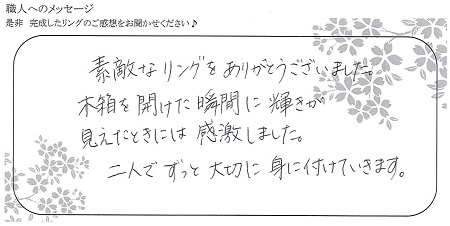 職人へのメッセージ
是非 完成したリングのご感想をお聞かせください♪
素敵なリングをありがとうございました。
木箱を開けた瞬間に輝きが
見えたときには感激しました。
二人でずっと大切に身に付けていきます。